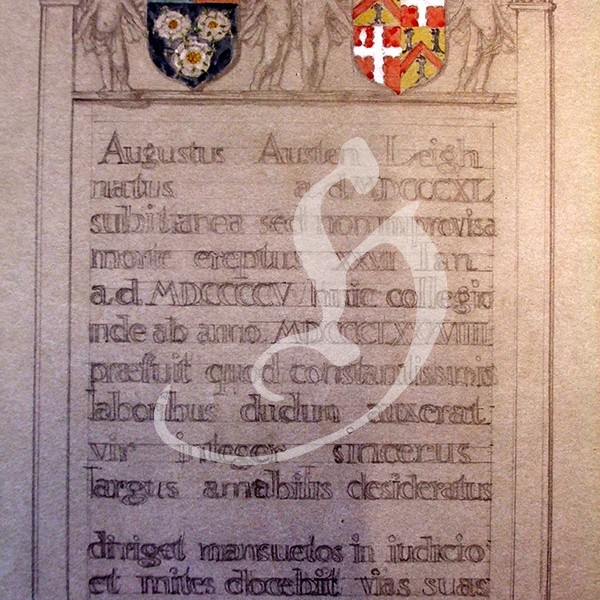 Augustus Austen Leigh
natus a.d. MDCCCXL
subitanea sed non improvisa
morte ereptus XXVI Ian
a.d. MDCCCCCV Huic collegio
inde ab anno MDCCCCLXXXVIIII
præfuit quod constantissimis
laboribus dudum auxerat
vir integer sincerus
largus amabilis desideratus
diriget mansuetos in iudicio
et mites docebit vias suas